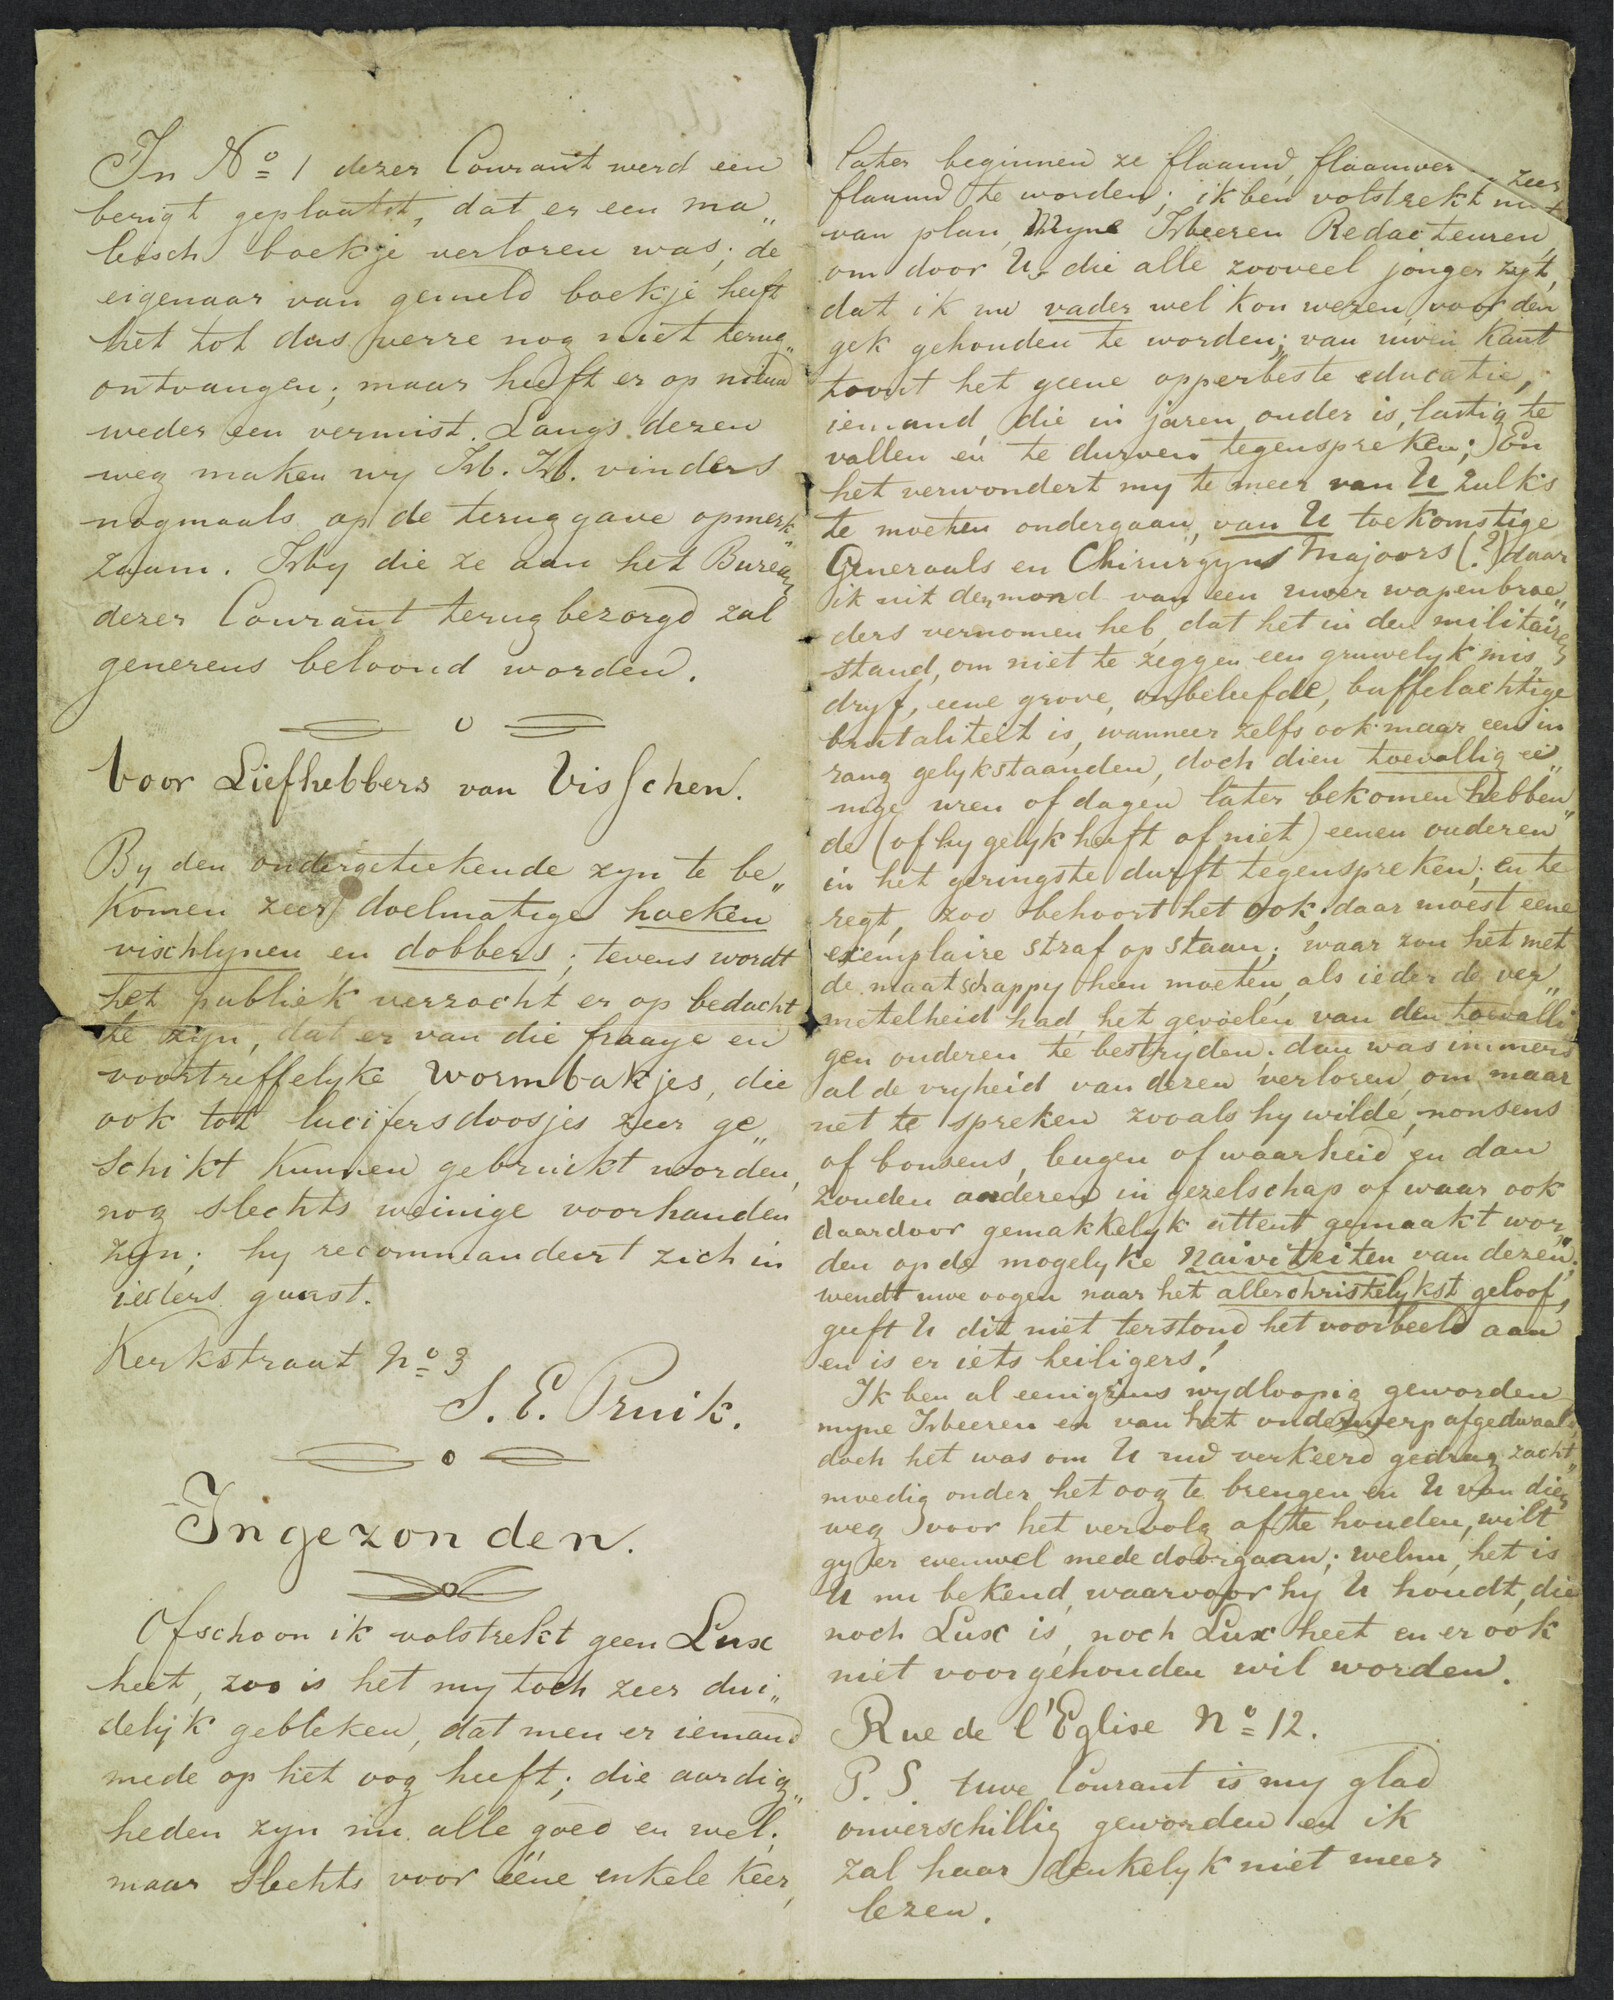 In No 1 dezer Courant werd een
berigt geplaatst, dat er een ma„
leisch boekje verloren was; de
eigenaar van gemeld boekje heeft
het tot dus verre nog niet terug„
ontvangen; maar heeft er op nieuw
weder een vermist. Langs dezen
weg maken wy HH. HH. vinders
nogmaals op de teruggave opmerk„
zaam. Hy die ze aan het Bureau
dezer Courant terugbezorgd zal
genereus beloond worden.
Voor Liefhebbers van Visschen.
By den ondergeteekende zyn te be„
komen zeer doelmatige hoeken
vischlynen en dobbers; tevens wordt
het publiek verzocht er op bedacht
te zyn, dat er van die fraaye en
voortreffelyke wormbakjes, die
ook tot lucifersdoosjes zeer ge„
schikt kunnen gebruikt worden,
nog slechts weinige voorhanden
zyn; hy recommandeert zich in
ieders gunst.
Kerkstraat No 3
S. E. Pruik.
Ingezonden.
Ofschoon ik volstrekt geen Lux
heet, zoo is het my toch zeer dui„
delyk gebleken, dat men er iemand
mede op het oog heeft; die aardig„
heden zyn nu alle goed en wel;
maar slechts voor ééne enkele keer,
later beginnen ze flaauw, flaauwer zeer
flaauw te worden; ik ben volstrekt niet
van plan, Myne Heeren Redacteuren,
om door U, die alle zooveel jonger zyt,
dat ik uw vader wel kon wezen, voor den
gek gehouden te worden; van uwen kant
toont het geene opperbeste educatie,
iemand, die in jaren ouder is, lastig te
vallen en te durven tegenspreken; En
het verwondert my te meer van U zulks
te moeten ondergaan, van U toekomstige
Generaals en Chirurgyns Majoors (?) daar
ik uit den mond van een uwer wapenbroe„
ders vernomen heb, dat het in den militairen
stand, om niet te zeggen een gruwelyk mis„
dryf, eene grove, onbeleefde, buffelachtige
brutaliteit is, wanneer zelfs ook maar een in
rang gelykstaanden, doch dien toevallig ee„
nige uren of dagen later bekomen hebben„
de (of hy gelyk heeft of niet) eenen ouderen
in het geringste durft tegenspreken; en te
regt, zoo behoort het ook; daar moest eene
exemplaire straf op staan; waar zou het met
de maatschappy heen moeten, als ieder de ver„
metelheid had, het gevoelen van den toevalli
gen ouderen te bestryden; dan was immers
al de vryheid van dezen verloren, om maar
net te spreken zooals hy wilde, nonsens
of bonsens, leugen of waarheid en dan
zouden anderen in gezelschap of waar ook
daardoor gemakkelyk attent gemaakt wor„
den op de mogelyke naiviteiten van dezen;
wendt uwe oogen naar het allerchristelykst geloof,
geeft U dit niet terstond het voorbeeld aan
en is er iets heiligers!
Ik ben al eenigzins wydloopig geworden
myne Heeren en van het onderwerp afgedwaald,
doch het was om U uw verkeerd gedrag zacht„
moedig onder het oog te brengen en U van dien
weg voor het vervolg af te houden, wilt
gy er evenwel mede doorgaan; welnu, het is
U nu bekend, waarvoor hy U houdt, die
noch Lux is, noch Lux heet en er ook
niet voor gehouden wil worden.
Rue de l'Eglise No 12.
P. S. Uwe Courant is my glad
onverschillig geworden en ik
zal haar denkelyk niet meer
lezen.